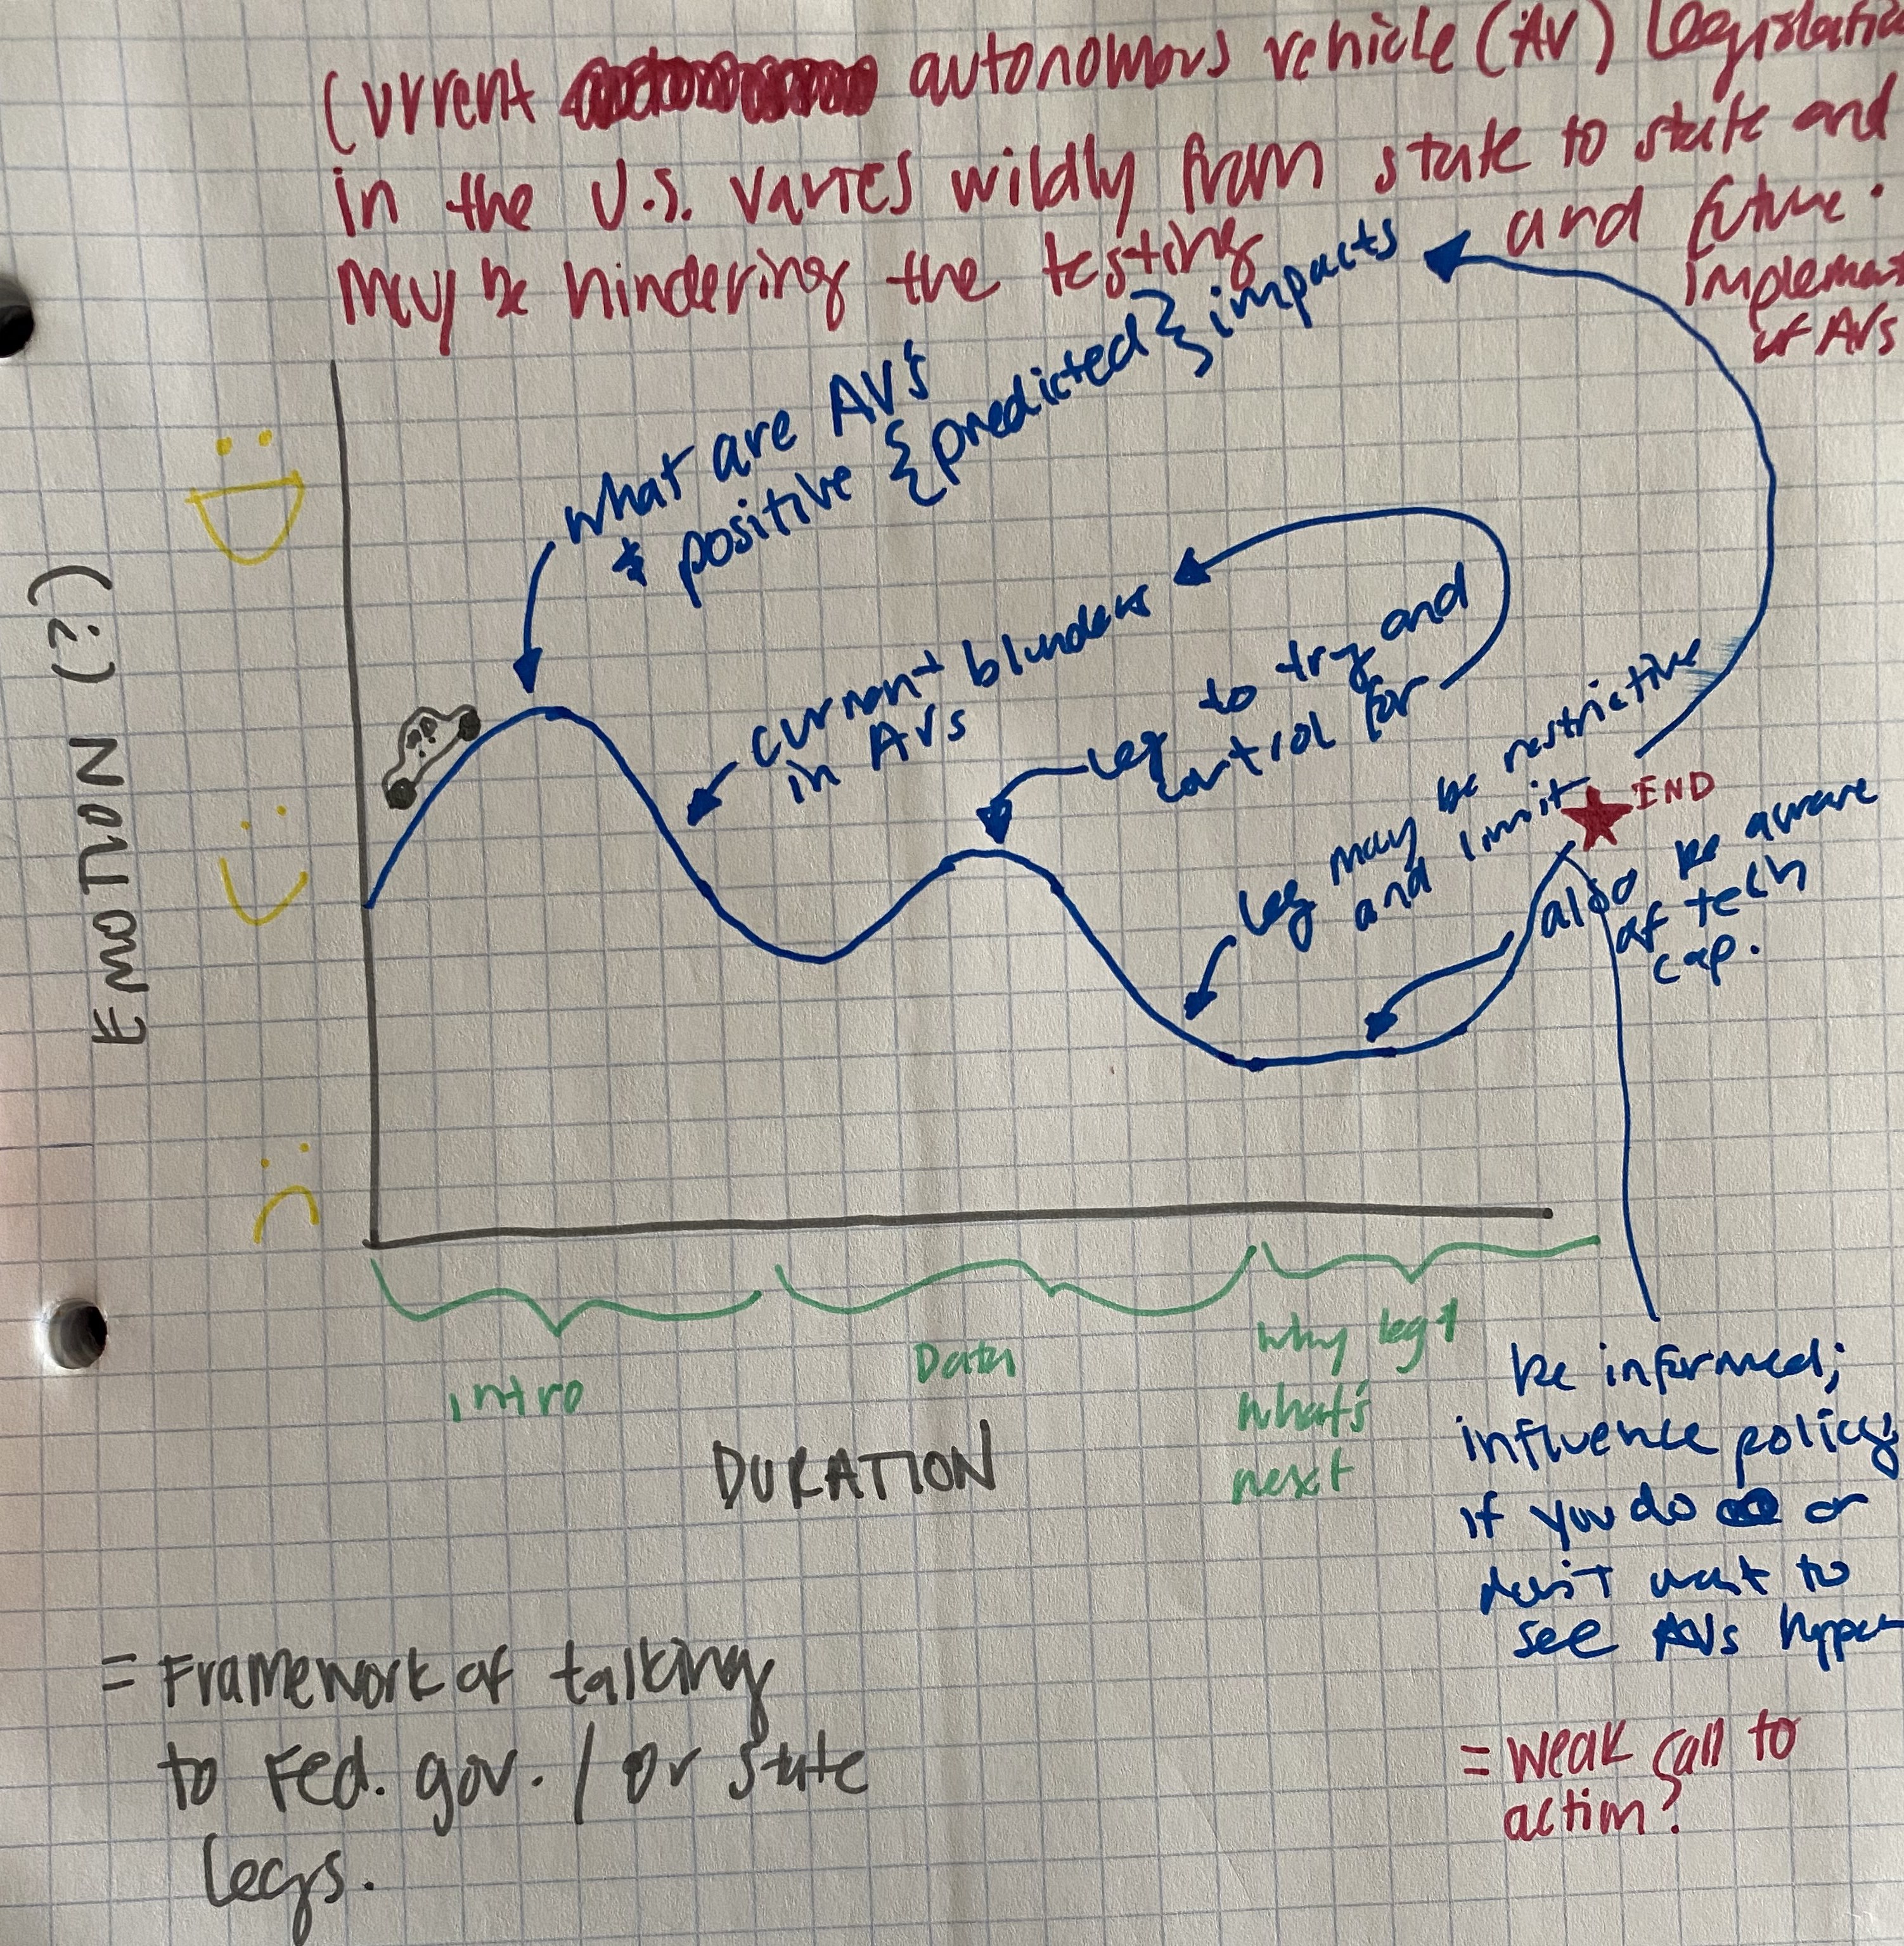 Current autonomous vehicle (AV) Legislatio
in the U.S. varies wildly from state to state and
may be hindering the testing and future
implement
of AVs
what are AV's
& positive {predicted} impacts
current blunders
in AVs
Leg to try and
control for
Leg may be restrictive
and limit
END
also be aware
of tech
cap.
EMOTION (?)
intro
Data
why leg?
what's
next
DURATION
be informed;
influence policy;
if you do or
don't want to
see AVs happen
= Framework of talking
to Fed. gov. / or state
legs.
= weak call to
action?